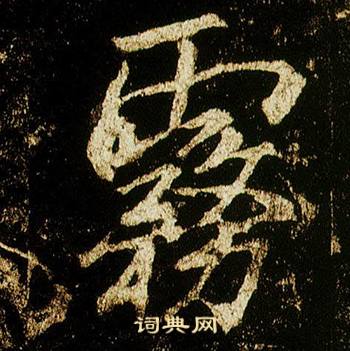 霧
词典网